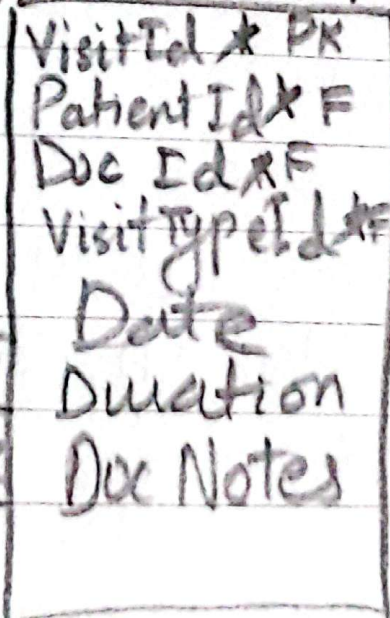 VisitId * PK
PatientId * F
Doc Id * F
VisitTypeId * F
Date
Duration
Doc Notes